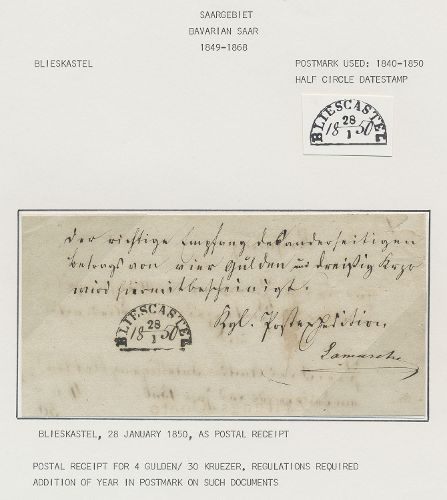 SAARGEBIET
BAVARIAN SAAR
1849-1868
BLIESKASTEL
POSTMARK USED: 1840-1850
HALF CIRCLE DATESTAMP
BLIESCASTEL
28
18 50
1
der richtige Empfang des anderseitigen
betrags von vier Gulden und dreißig Krzr
wird hiermit bescheinigt.
BLIESCASTEL
28
18 50
1
Kgl. Postexpedition
BLIESKASTEL, 28 JANUARY 1850, AS POSTAL RECEIPT
POSTAL RECEIPT FOR 4 GULDEN/ 30 KRUEZER, REGULATIONS REQUIRED
ADDITION OF YEAR IN POSTMARK ON SUCH DOCUMENTS